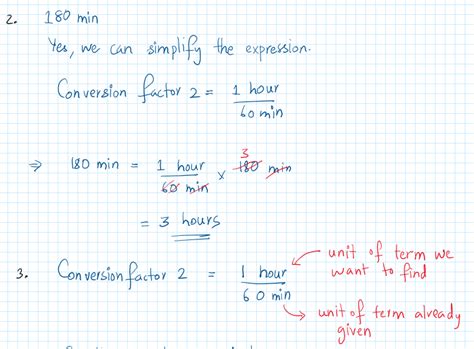 2. 180 min
Yes, we can simplify the expression.
Conversion factor 2 = 1 hour / 60 min
⇒ 180 min = 1 hour / 60 min × 180 min 3
= 3 hours
3. Conversion factor 2 = 1 hour / 60 min
unit of term we
want to find
unit of term already
given